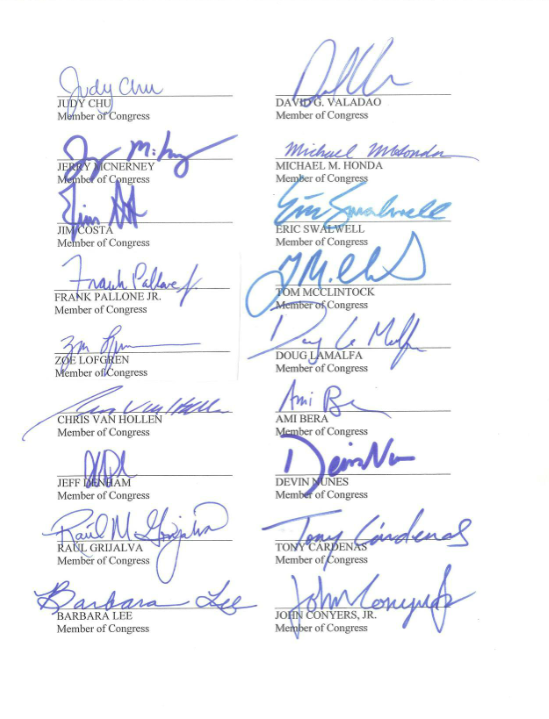 Judy Chu
JUDY CHU
Member of Congress
DAVID G. VALADAO
Member of Congress
JERRY MCNERNEY
Member of Congress
Michael M Honda
MICHAEL M. HONDA
Member of Congress
Jim
JIM COSTA
Member of Congress
Eric Swalwell
ERIC SWALWELL
Member of Congress
Frank Pallone Jr.
FRANK PALLONE JR.
Member of Congress
TOM MCCLINTOCK
Member of Congress
ZOE LOFGREN
Member of Congress
Doug LaMalfa
DOUG LAMALFA
Member of Congress
Chris Van Hollen
CHRIS VAN HOLLEN
Member of Congress
Ami Be
AMI BERA
Member of Congress
JEFF DENHAM
Member of Congress
Devin Nu
DEVIN NUNES
Member of Congress
Raúl M Grijalva
RAUL GRIJALVA
Member of Congress
Tony Cárdenas
TONY CARDENAS
Member of Congress
Barbara Lee
BARBARA LEE
Member of Congress
John Conyers
JOHN CONYERS, JR.
Member of Congress